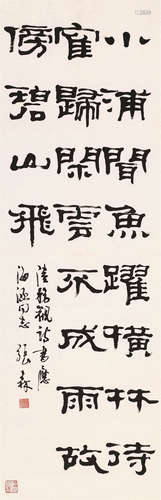 小浦聞魚躍橫林待
隺歸閑雲不成雨故
傍碧山飛
陸務觀詩書應
海涵同志 張森